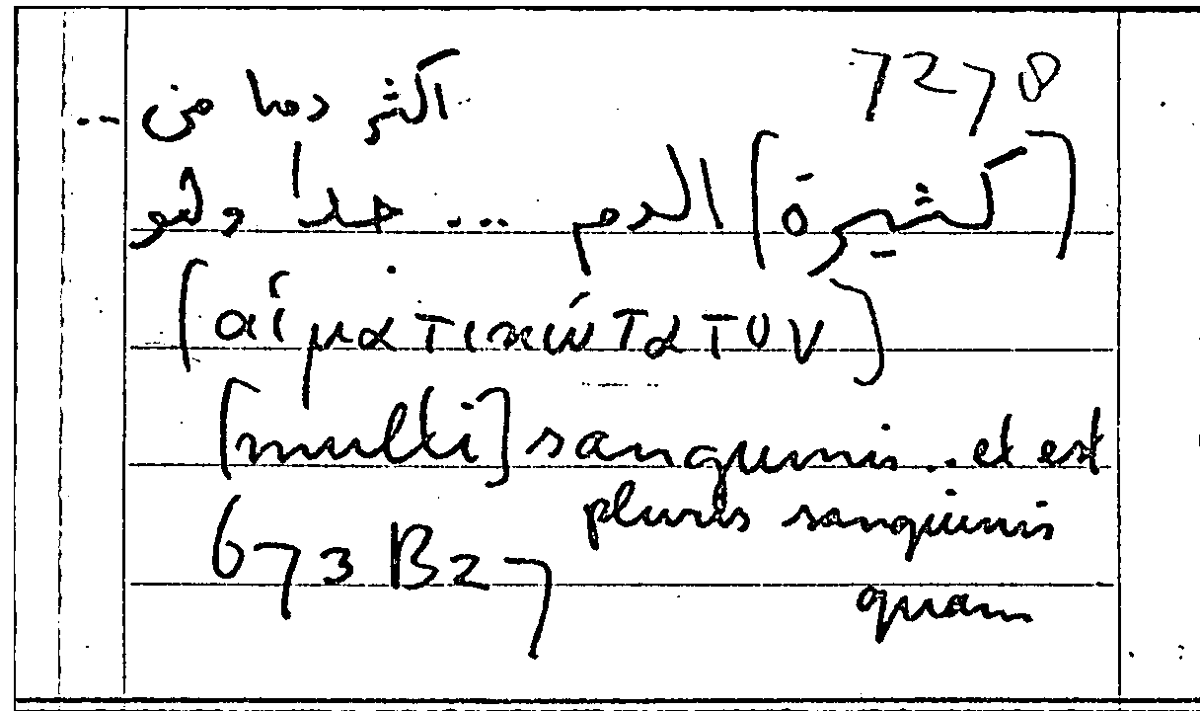 7278 اكثر دما من ..
(كثيرة) الدم ... جدا وهو
(αἱματικώτατον)
[multi] sanguinis .. et est
pluris sanguinis
673 B27 quam